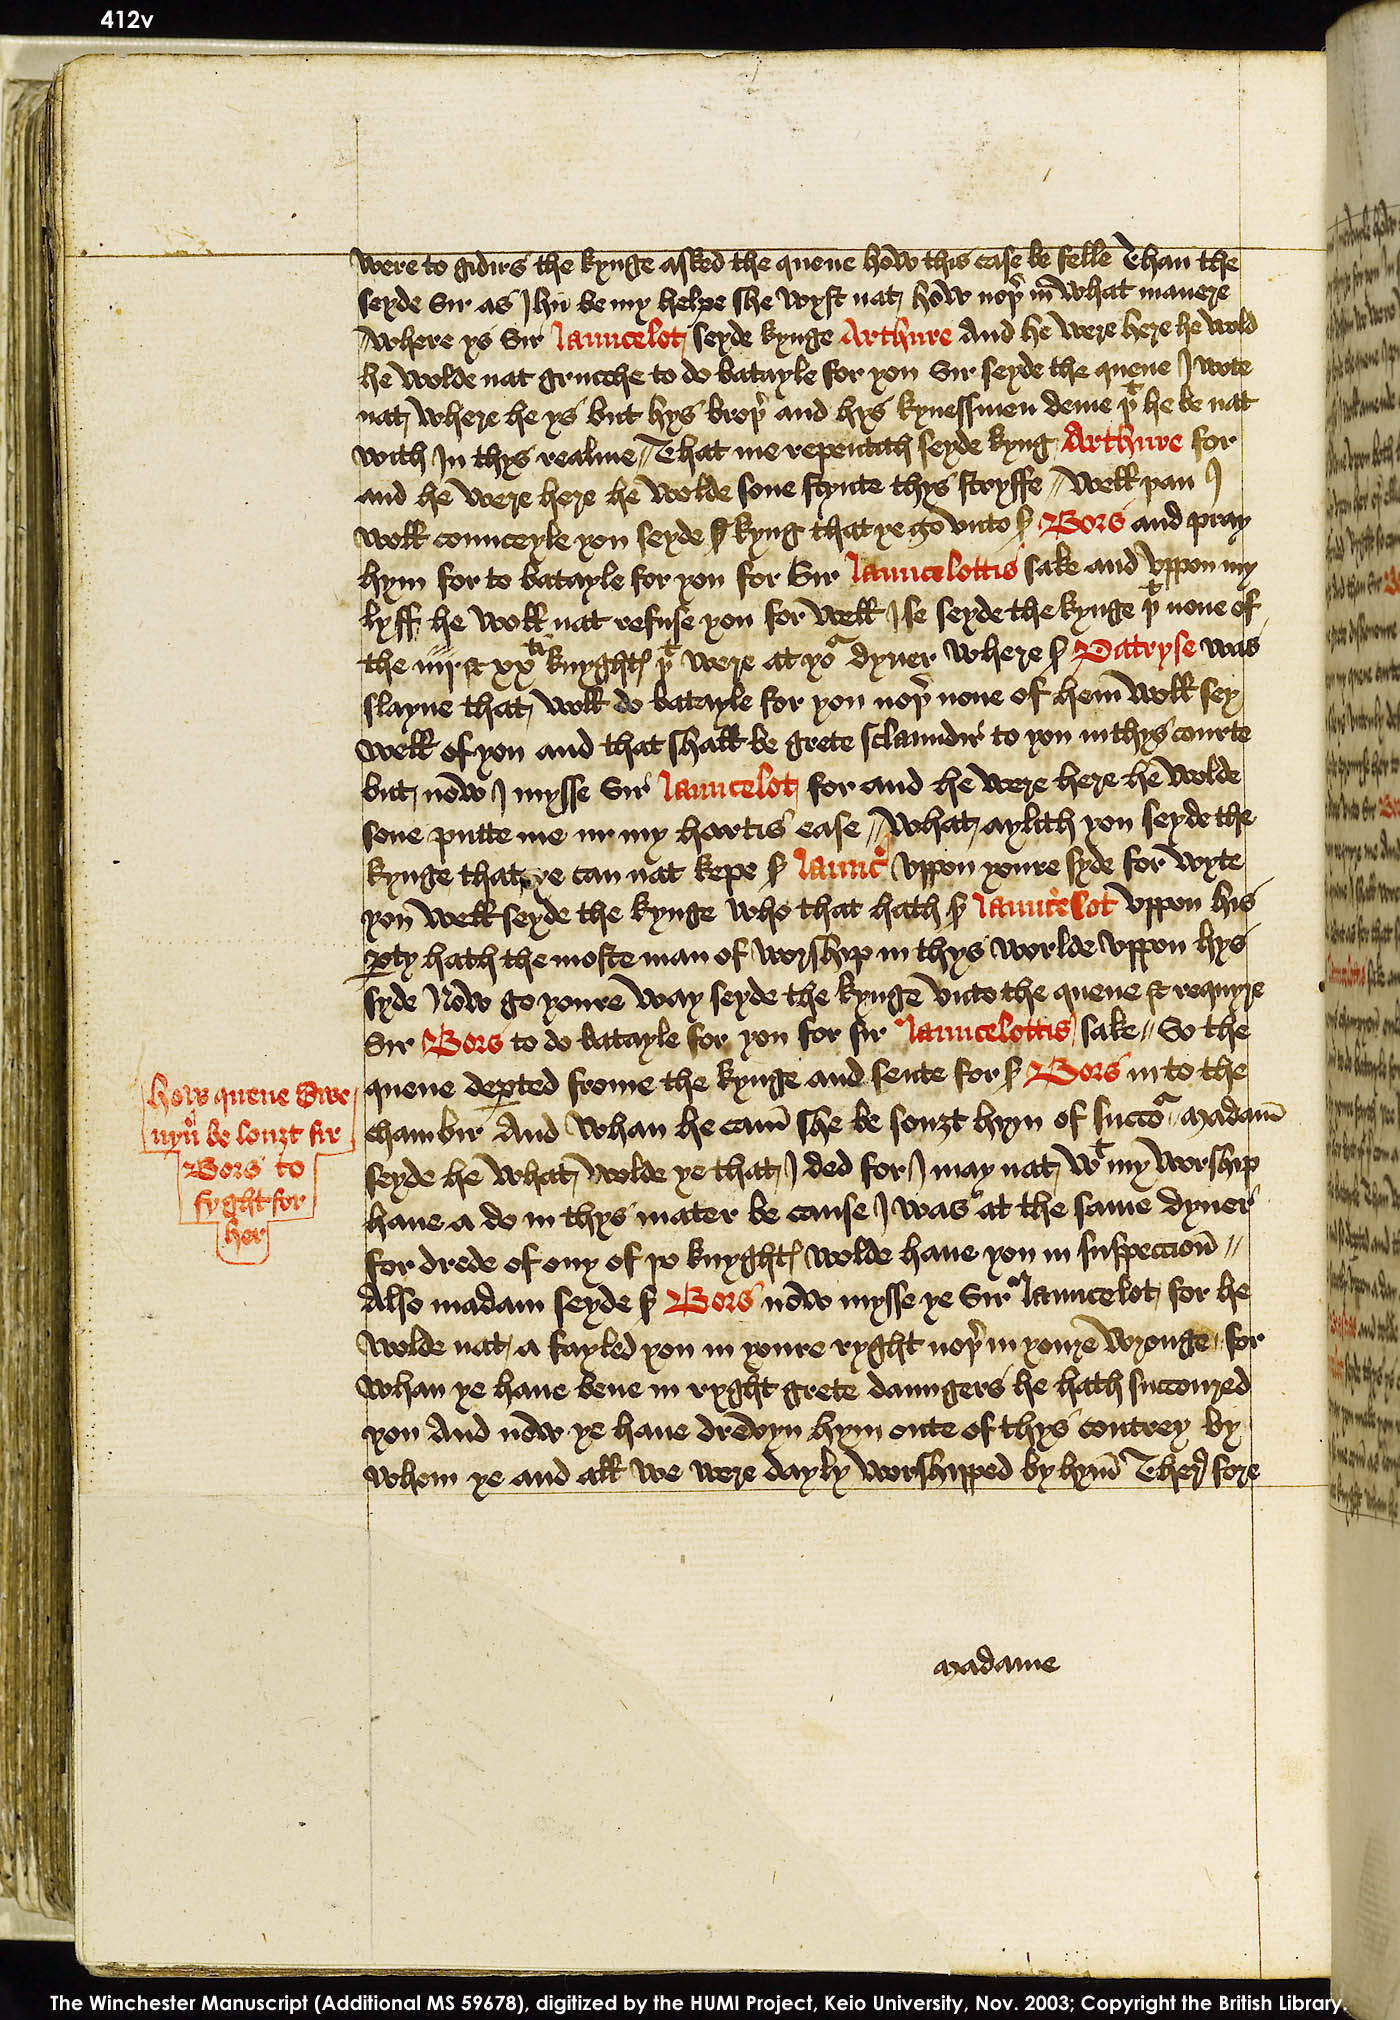 412v
were to gidirs the kynge asked the quene how this case be felle Than the
seyde Sir as Jhu be my helpe she wyst nat how noþ̉ in what manere
Where ys Sir Launcelot seyde kynge Arthure And he were here he wold
he wolde nat grucche to do batayle for you Sir seyde the quene I wote
nat where he ys but hys broþ̉ and hys kynessmen deme þᵗ he be nat
with In thys realme // That me repentith seyde kyng Arthure for
and he were here he wolde sone stynte thys stryffe // Well þan I
woll counceyle you seyde þe kyng that ye go vnto Ꝭ Bors and pray
hym for to batayle for you for Sir Launcelottis sake and vppon my
lyff he woll nat refuse you for well I se seyde the kynge þᵗ none of
the iiij & xxᵗⁱ knyghtꝭ þᵗ were at yoᵃ dyner where Ꝭ Patryse was
slayne that woll do batayle for you noþ̉ none of hem̄ woll sey
well of you and that shall be grete sclaundir to you in thys courte
but now I mysse Sir Launcelot for and he were here he wolde
sone putte me in my hartis ease // What aylith you seyde the
kynge that ye can nat kepe Ꝭ Launc̉ vppon youre syde for wyte
you well seyde the kynge who that hath Ꝭ Launcelot vppon his
ꝑty hath the moste man of worship in thys worlde vppon hys
syde Now go youre way seyde the kynge vnto the quene & requyre
Sir Bors to do batayle for you for sir Launcelottis sake // So the
quene deꝑted frome the kynge and sente for Ꝭ Bors in to the
chambir And whan he cam̄ she be souȝt hym of succoᵃ madam̄
seyde he what wolde ye that I ded for I may nat wᵗ my worship
haue a do in thys mater be cause I was at the same dyner
for drede of ony of þo knyghtꝭ wolde haue you in suspeccion̄ //
Also madam seyde Ꝭ Bors now mysse ye Sir Launcelot for he
wolde nat a fayled you in youre ryght noþ̉ in youre wronge for
whan ye haue bene in ryght grete daungers he hath succoured
you And now ye haue drevyn hym oute of thys contrey by
whom ye and all we were dayly worshipped by hym̄ Ther fore
how quene Gwe
nyủ be souȝt sir
Bors to
fyght for
her
madame
The Winchester Manuscript (Additional MS 59678), digitized by the HUMI Project, Keio University, Nov. 2003; Copyright the British Library.